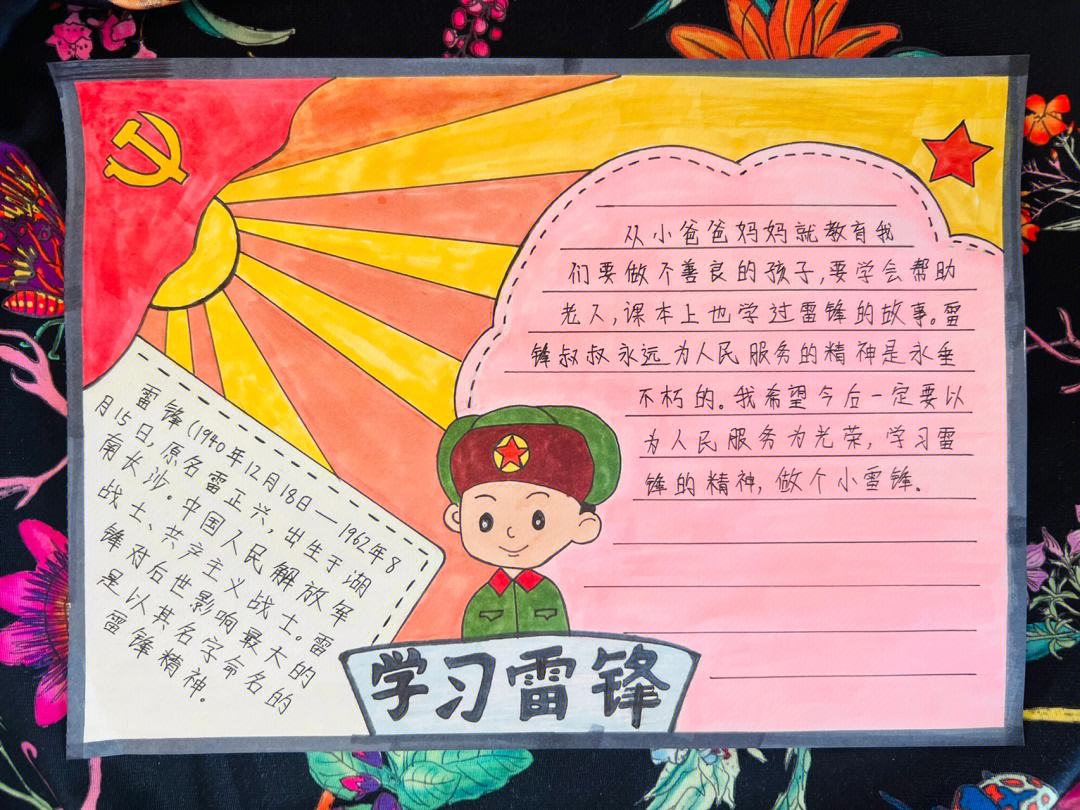 从小爸爸妈妈就教育我
们要做个善良的孩子,要学会帮助
老人,课本上也学过雷锋的故事。雷
锋叔叔永远为人民服务的精神是永垂
不朽的。我希望今后一定要以
为人民服务为光荣,学习雷
锋的精神,做个小雷锋.
雷锋(1940年12月18日—1962年8
月15日,原名雷正兴,出生于湖
南长沙。中国人民解放军
战士、共产主义战士。雷
锋对后世影响最大的
是以其名字命名的
雷锋精神.
学习雷锋